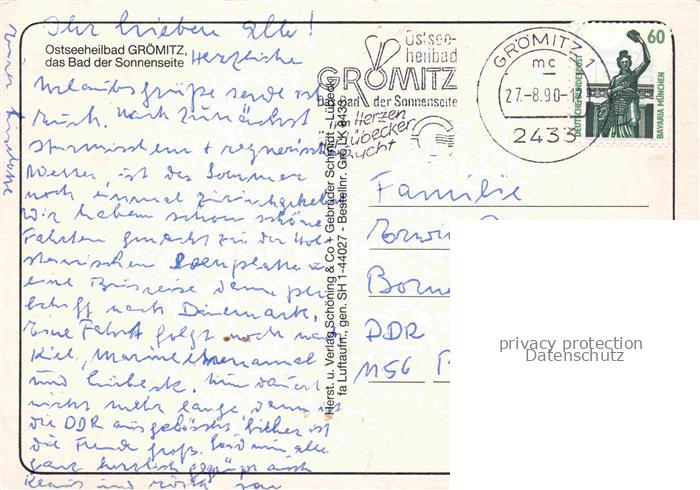 Ihr lieben alle!
Ostseeheilbad GRÖMITZ,
das Bad der Sonnenseite
Herzliche
Urlaubsgrüße sende ich
Euch. Nach zunächst
stürmischem + regnerischem
Wetter ist der Sommer
noch einmal zurückgekehrt
Wir haben schon schöne
Fahrten gemacht zu der Hol-
steinischen Seenplatte u.
eine Busreise dann per
Schiff nach Dänemark.
Eine Fahrt folgt noch nach
Kiel, Marineehrenmal
und Lübeck. Nun dauert
nicht mehr lange, dann ist
die DDR ausgelöscht. Bisher ist
die Freude groß. Seid nun alle
ganz herzlich gegrüßt auch
Klaus und von
Herst. u. Verlag Schöning & Co + Gebrüder Schmidt - Lübeck
fa Luftaufn., gen. SH 1-44027 - Bestellnr. Grö LK 8438
Ostsee-
heilbad
GRÖMITZ
Das Bad der Sonnenseite
Im Herzen
der Lübecker
Bucht
GRÖMITZ 1
mc
27.-8.90-1
2433
60
DEUTSCHE BUNDESPOST
BAVARIA MÜNCHEN
Familie
Erwin
Borne
DDR
1156
privacy protection
Datenschutz